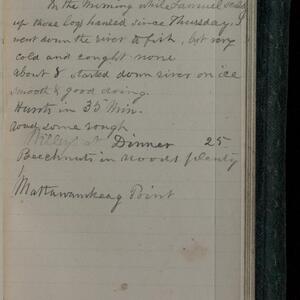 In the morning while Samuel scaled
up those logs hauled since Thursday I
went down the river to fish, but very
cold and caught none
about 8 started down river on ice
smooth & good going.
Hunts in 35 Min.
road some rough
Willys at Dinner 25
Beechnuts in woods plenty
Mattawamkeag Point